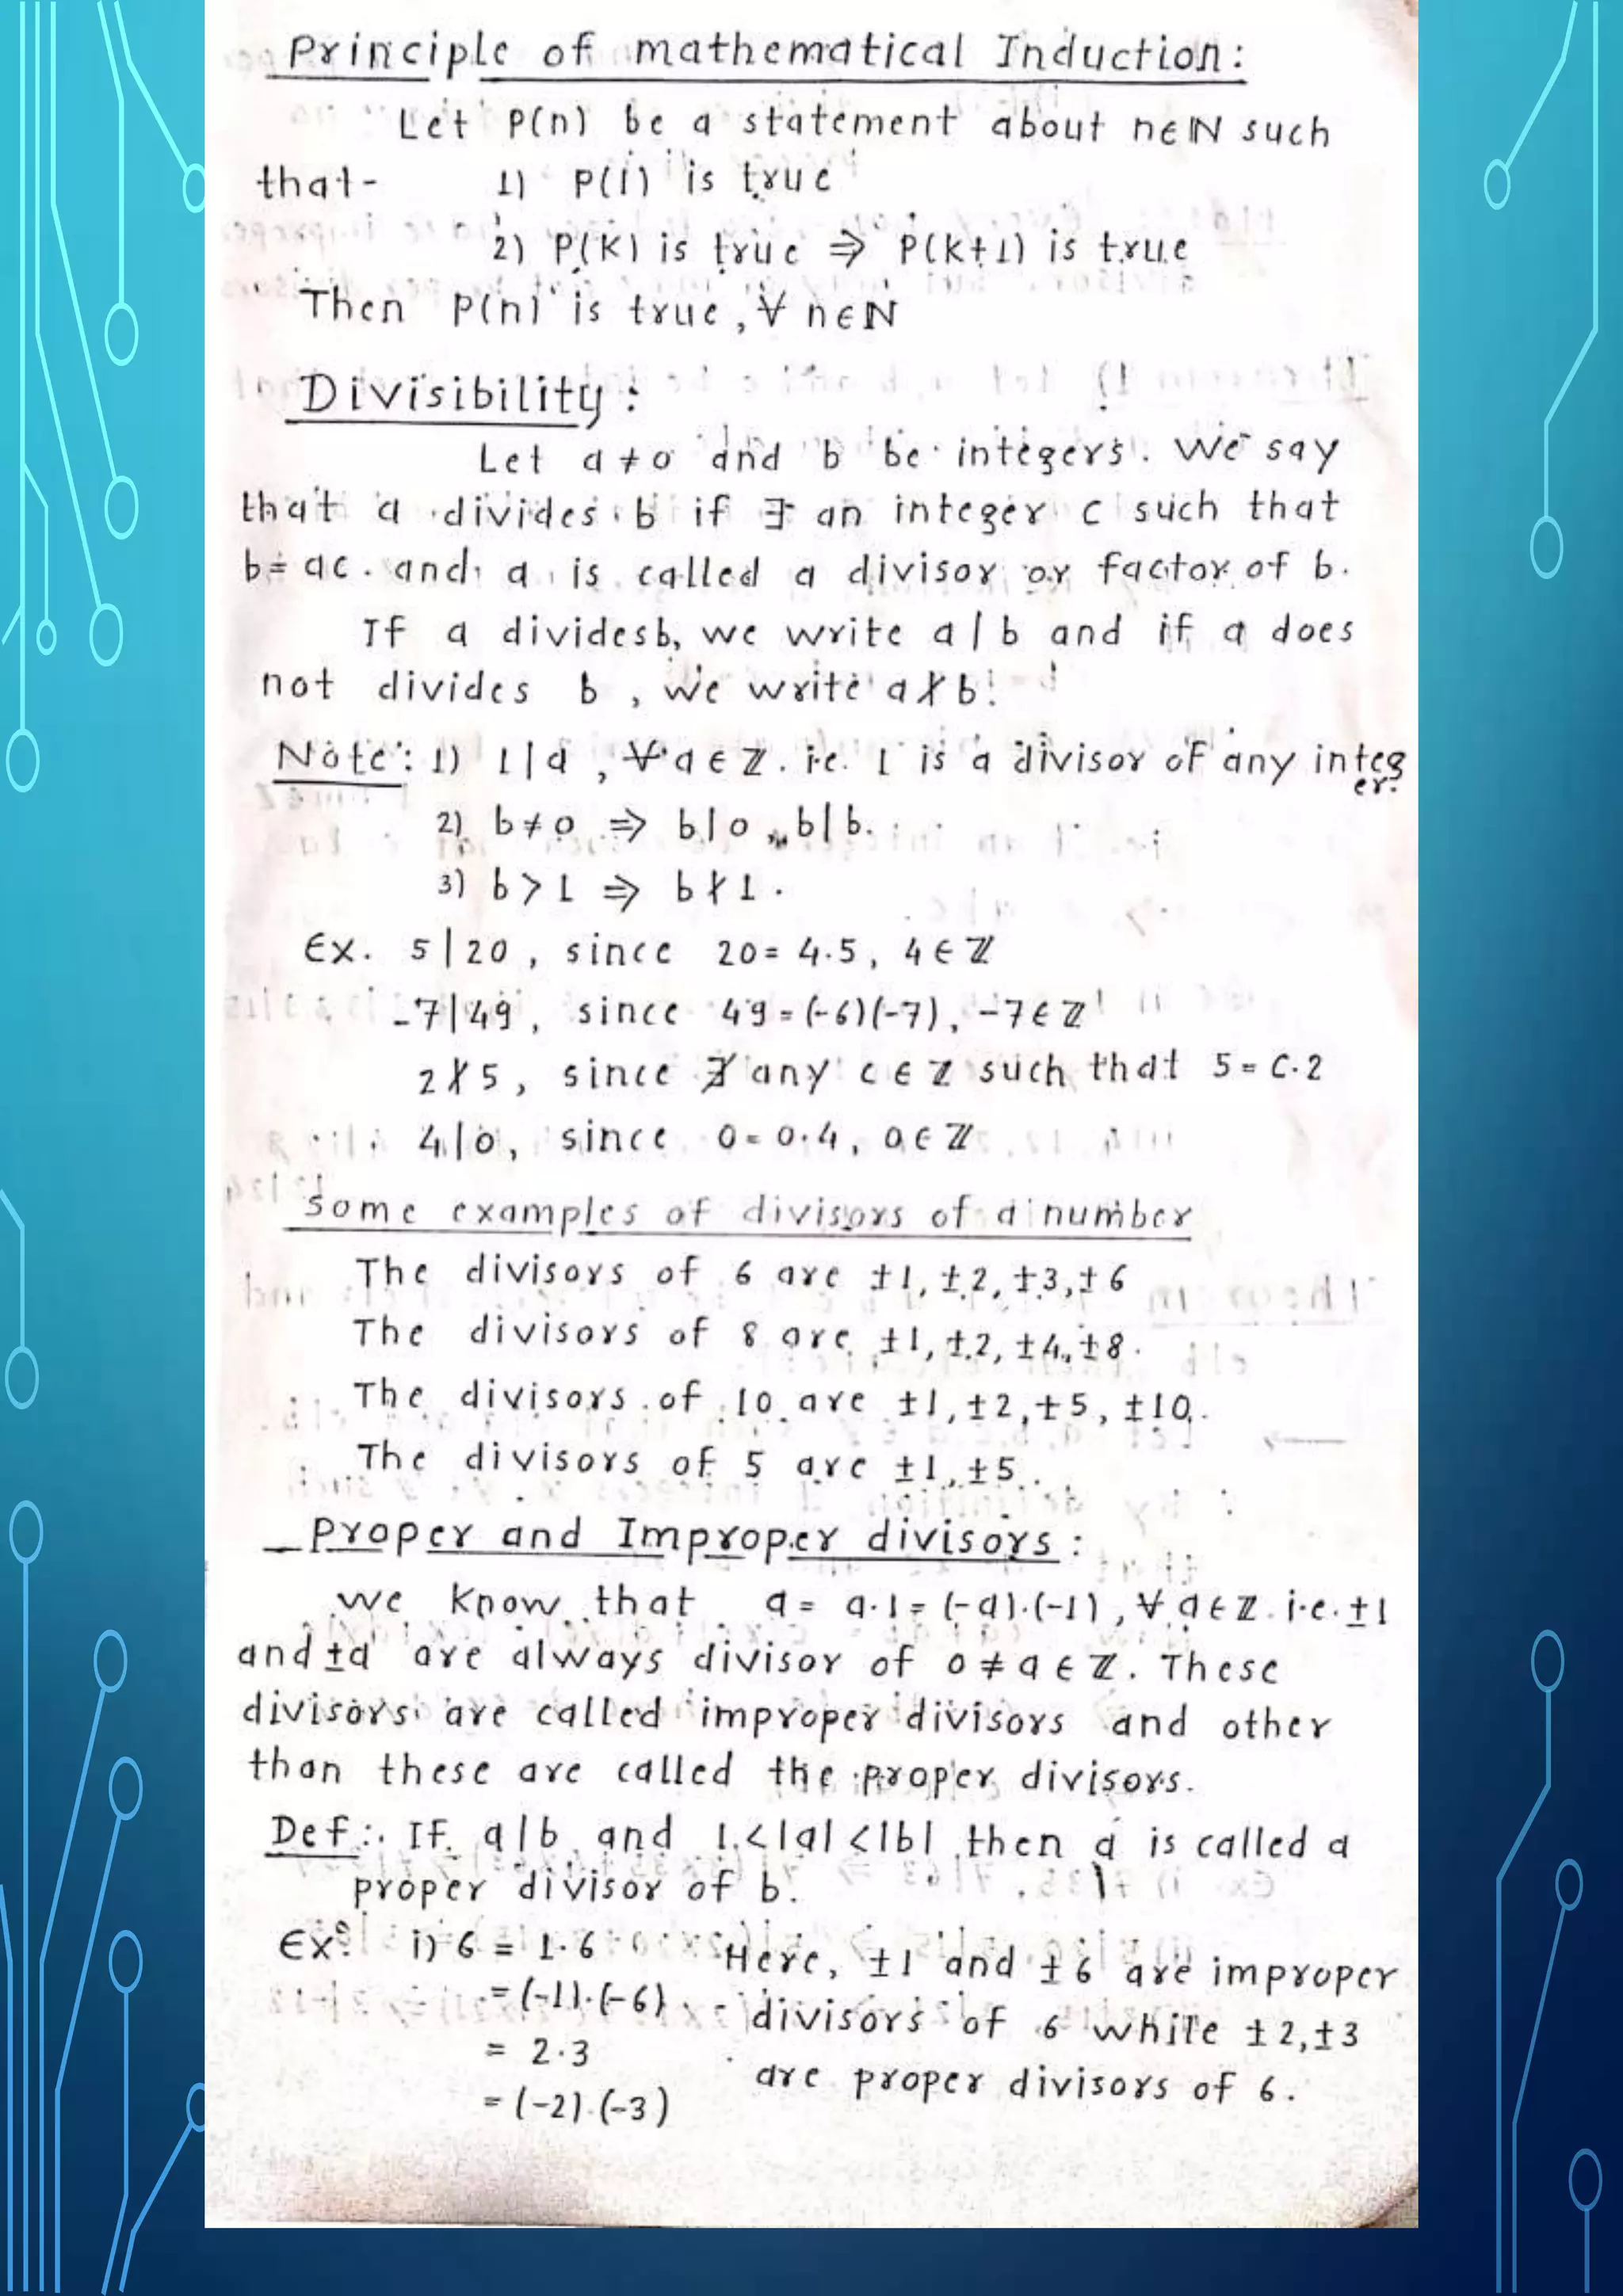 Principle of mathematical Induction:
Let P(n) be a statement about n∈ℕ such
that- 1) P(1) is true
2) P(K) is true ⇒ P(K+1) is true
Then P(n) is true, ∀ n∈ℕ
Divisibility:
Let a≠0 and b be integers. We say
that a divides b if ∃ an integer c such that
b=ac. and a is called a divisor or factor of b.
If a dividesb, we write a|b and if a does
not divides b, we write a∤b.
Note: 1) 1|a, ∀ a∈ℤ. i.e. 1 is a divisor of any integ
er.
2) b≠0 ⇒ b|0, b|b.
3) b>1 ⇒ b∤1.
Ex. 5|20, since 20=4·5, 4∈ℤ
-7|49, since 49=(-6)(-7), -7∈ℤ
2∤5, since ∄ any c∈ℤ such that 5=c·2
4|0, since 0=0·4, 0∈ℤ
Some examples of divisors of a number
The divisors of 6 are ±1, ±2, ±3, ±6
The divisors of 8 are ±1, ±2, ±4, ±8.
The divisors of 10 are ±1, ±2, ±5, ±10.
The divisors of 5 are ±1, ±5.
Proper and Improper divisors:
we know that a = a·1 = (-a)·(-1), ∀ a∈ℤ i.e. ±1
and ±a are always divisor of 0≠a∈ℤ. These
divisors are called improper divisors and other
than these are called the proper divisors.
Def:. If a|b and 1<|a|<|b| then a is called a
proper divisor of b.
Ex: i) 6 = 1·6 Here, ±1 and ±6 are improper
= (-1)·(-6) divisors of 6 while ±2, ±3
= 2·3 are proper divisors of 6.
= (-2)·(-3)